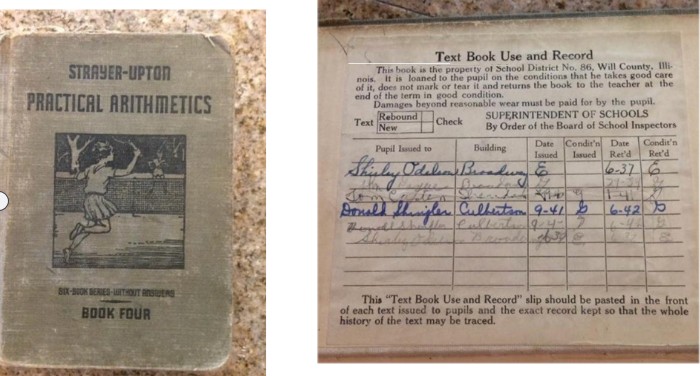 STRAYER-UPTON
PRACTICAL ARITHMETICS
SIX-BOOK SERIES-WITHOUT ANSWERS
BOOK FOUR
Text Book Use and Record
This book is the property of School District No. 86, Will County, Illi-
nois. It is loaned to the pupil on the conditions that he takes good care
of it, does not mark or tear it and returns the book to the teacher at the
end of the term in good condition.
Damages beyond reasonable wear must be paid for by the pupil.
Text Rebound New Check
SUPERINTENDENT OF SCHOOLS
By Order of the Board of School Inspectors
Pupil Issued to Building Date Issued Condit'n Issued Date Ret'd Condit'n Ret'd
Shirley Broadway E 6-37 G
Tom Sheridan
Donald Shingler Culbertson 9-41 G 6-42 G
Culbertson
Shirley
This "Text Book Use and Record" slip should be pasted in the front
of each text issued to pupils and the exact record kept so that the whole
history of the text may be traced.